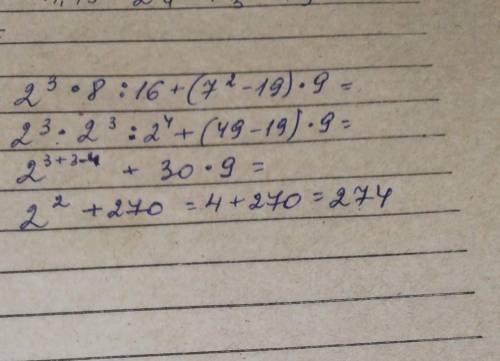 2³ · 8 : 16 + (7² - 19) · 9 =
2³ · 2³ : 2⁴ + (49 - 19) · 9 =
2³⁺³⁻⁴ + 30 · 9 =
2² + 270 = 4 + 270 = 274